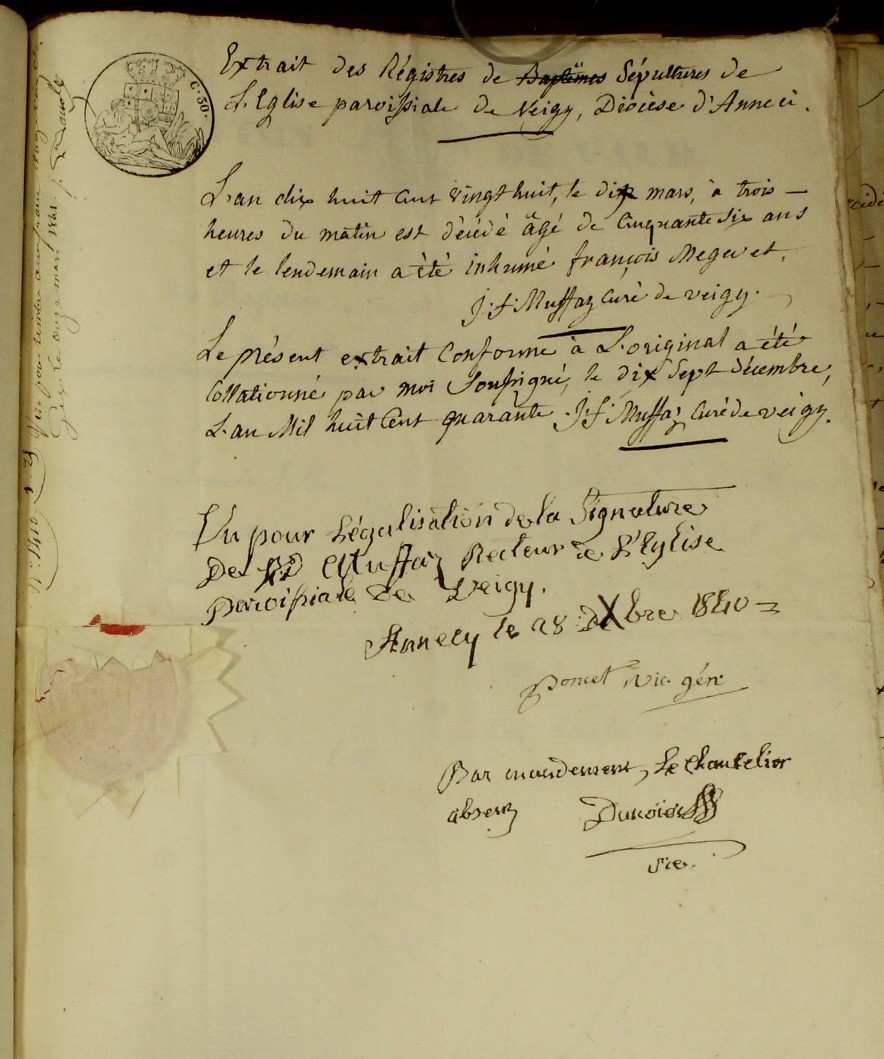 Extrait des Régistres de Baptêmes Sépultures de
L'Eglise paroissiale de Veigy, Diocèse d'Anneci.
C. 50.
L'an dix huit cent vingt huit, le dix mars, à trois
heures du matin est décédé âgé de cinquante six ans
et le lendemain a été inhumé françois Megevet.
J. f. Muffaz curé de veigy.
Le présent extrait conforme à L'original a été
Collationné par moi Soussigné, le dix Sept décembre,
L'an Mil huit Cent quarante. J. f. Muffaz Curé de veigy.
Vu pour Légalisation de la Signature
De Rd Muffaz Recteur de L'Eglise
paroissiale de Veigy.
Annecy le 28 Xbre 1840
Poncet vic. gén.
Par mandement, Le Chancelier
absent